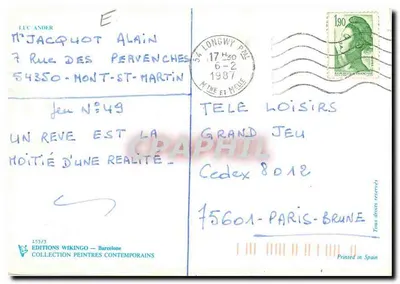 LUC ANDER
E
Mr JACQUOT ALAIN
7 RUE DES PERVENCHES
54350 - MONT-ST-MARTIN
Jeu N° 49
UN REVE EST LA
MOITIÉ D'UNE REALITE -
54 LONGWY PPAL
17 H 30
6-2
1987
MTHE ET MOSELLE
1,90
TELE LOISIRS
GRAND JEU
Cedex 8012
75601 - PARIS-BRUNE
EDITIONS WIKINGO — Barcelone
COLLECTION PEINTRES CONTEMPORAINS
Tous droits réservés
Printed in Spain
PRPHOTO